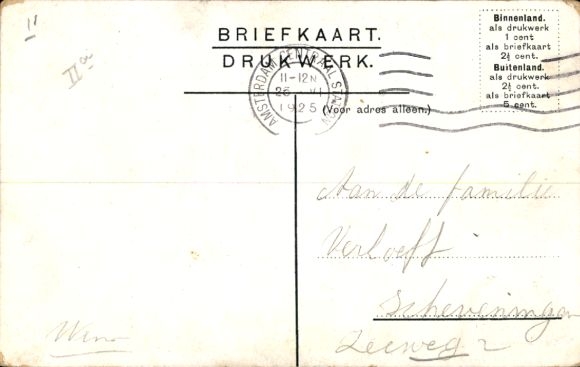 11
IIa
BRIEFKAART.
DRUKWERK.
(Voor adres alleen.)
AMSTERDAM CENTRAAL STATION
11-12N
25 VI
1925
Binnenland.
als drukwerk
1 cent
als briefkaart
2½ cent.
Buitenland.
als drukwerk
2½ cent.
als briefkaart
5 cent.
Aan de familie
Verloeff
Scheveningen
Zeeweg 2